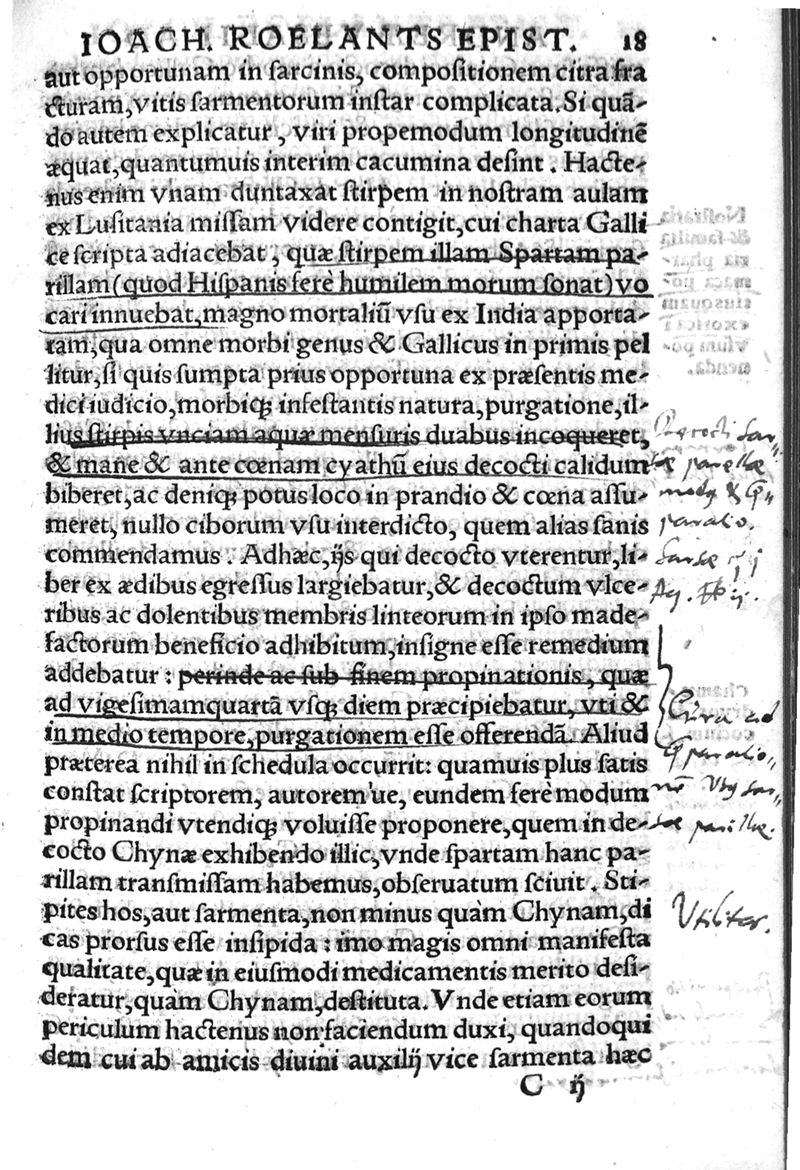 IOACH. ROELANTS EPIST. 18
aut opportunam in sarcinis, compositionem citra fra
cturam, vitis sarmentorum instar complicata. Si quã-
do autem explicatur, viri propemodum longitudinẽ
æquat, quantumuis interim cacumina desint. Hacte-
nus enim vnam duntaxat stirpem in nostram aulam
ex Lusitania missam videre contigit, cui charta Galli
ce scripta adiacebat, quæ stirpem illam Spartam pa-
rillam (quod Hispanis ferè humilem morum sonat) vo
cari innuebat, magno mortaliũ vsu ex India apporta-
tam, qua omne morbi genus & Gallicus in primis pel
litur, si quis sumpta prius opportuna ex præsentis me-
dici iudicio, morbiqꝫ infestantis natura, purgatione, il-
lius stirpis vnciam aquæ mensuris duabus incoqueret,
& mane & ante cœnam cyathũ eius decocti calidum
biberet, ac deniqꝫ potus loco in prandio & cœna assu-
meret, nullo ciborum vsu interdicto, quem alias sanis
commendamus. Adhæc, ijs qui decocto vterentur, li-
ber ex ædibus egressus largiebatur, & decoctum vlce-
ribus ac dolentibus membris linteorum in ipso made-
factorum beneficio adhibitum, insigne esse remedium
addebatur: perinde ac sub finem propinationis, quæ
ad vigesimamquartã vsqꝫ diem præcipiebatur, vti &
in medio tempore, purgationem esse offerendã. Aliud
præterea nihil in schedula occurrit: quamuis plus satis
constat scriptorem, autorem'ue, eundem ferè modum
propinandi vtendiqꝫ voluisse proponere, quem in de-
cocto Chynæ exhibendo illic, vnde spartam hanc pa-
rillam transmissam habemus, obseruatum sciuit. Sti-
pites hos, aut sarmenta, non minus quàm Chynam, di
cas prorsus esse insipida: imo magis omni manifesta
qualitate, quæ in eiusmodi medicamentis merito desi-
deratur, quàm Chynam, destituta. Vnde etiam eorum
periculum hactenus non faciendum duxi, quandoqui
dem cui ab amicis diuini auxilij vice sarmenta hæc
C ij
Decocti Sar-
tæ parillæ
mody &
paratio.
Cura ad
paratio-
parillæ.
Vtilitas.